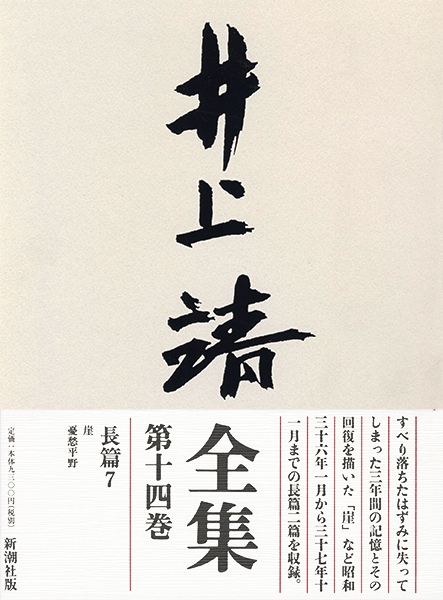 井上靖
すべり落ちたはずみに失って
しまった三年間の記憶とその
回復を描いた「崖」など昭和
三十六年一月から三十七年十
一月までの長篇二篇を収録。
全集
第十四巻
長篇7
崖
憂愁平野
定価:本体九、三〇〇円(税別)
新潮社版